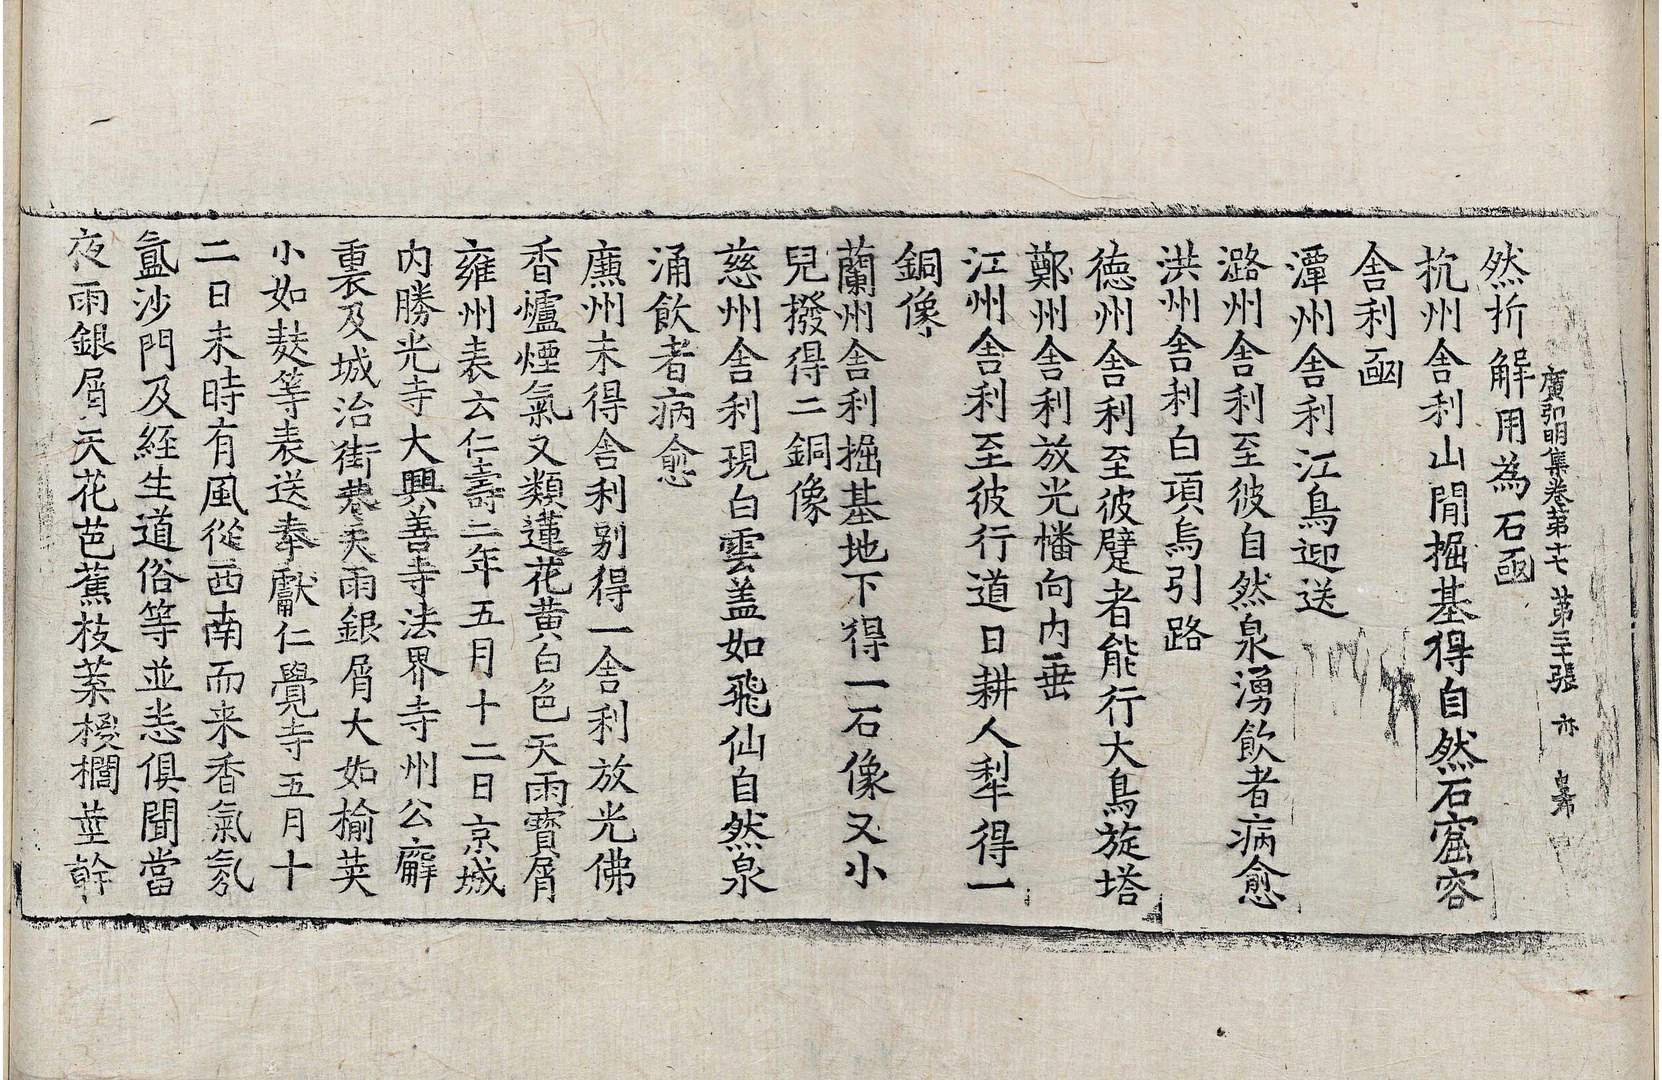 廣弘明集卷第十七 第三十張 亦
然折解用為石函
杭州舍利山間掘基得自然石窟容
舍利函
潭州舍利江鳥迎送
潞州舍利至彼自然泉湧飲者病愈
洪州舍利白項烏引路
德州舍利至彼躄者能行大鳥旋塔
鄭州舍利放光幡向內垂
江州舍利至彼行道日耕人犁得一
銅像
蘭州舍利掘基地下得一石像又小
兒撥得二銅像
慈州舍利現白雲盖如飛仙自然泉
涌飲者病愈
廉州未得舍利別得一舍利放光佛
香爐煙氣又類蓮花黃白色天雨寶屑
雍州表云仁壽二年五月十二日京城
內勝光寺大興善寺法界寺州公廨
裏及城治街巷天雨銀屑大如榆莢
小如麩等表送奉獻仁覺寺五月十
二日未時有風從西南而来香氣氛
氳沙門及経生道俗等並悉俱聞當
夜雨銀屑天花芭蕉枝葉椶櫚莖幹